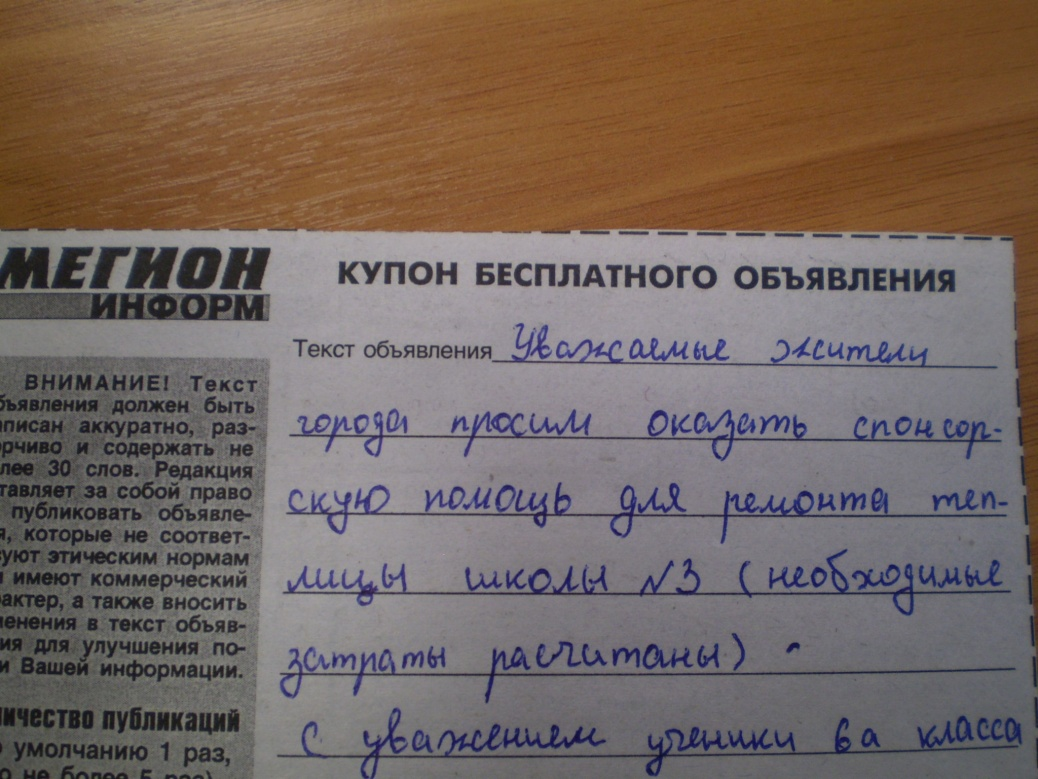 МЕГИОН
ИНФОРМ
ВНИМАНИЕ! Текст
бъявления должен быть
аписан аккуратно, раз-
орчиво и содержать не
лее 30 слов. Редакция
тавляет за собой право
публиковать объявле-
я, которые не соответ-
уют этическим нормам
имеют коммерческий
рактер, а также вносить
менения в текст объяв-
ия для улучшения по-
и Вашей информации.
ичество публикаций
умолчанию 1 раз,
о не более 5 раз)
КУПОН БЕСПЛАТНОГО ОБЪЯВЛЕНИЯ
Текст объявления Уважаемые жители
города просим оказать спонсор-
скую помощь для ремонта теп-
лицы школы №3 (необходимые
затраты расчитаны) -
С уважением ученики 6а класса